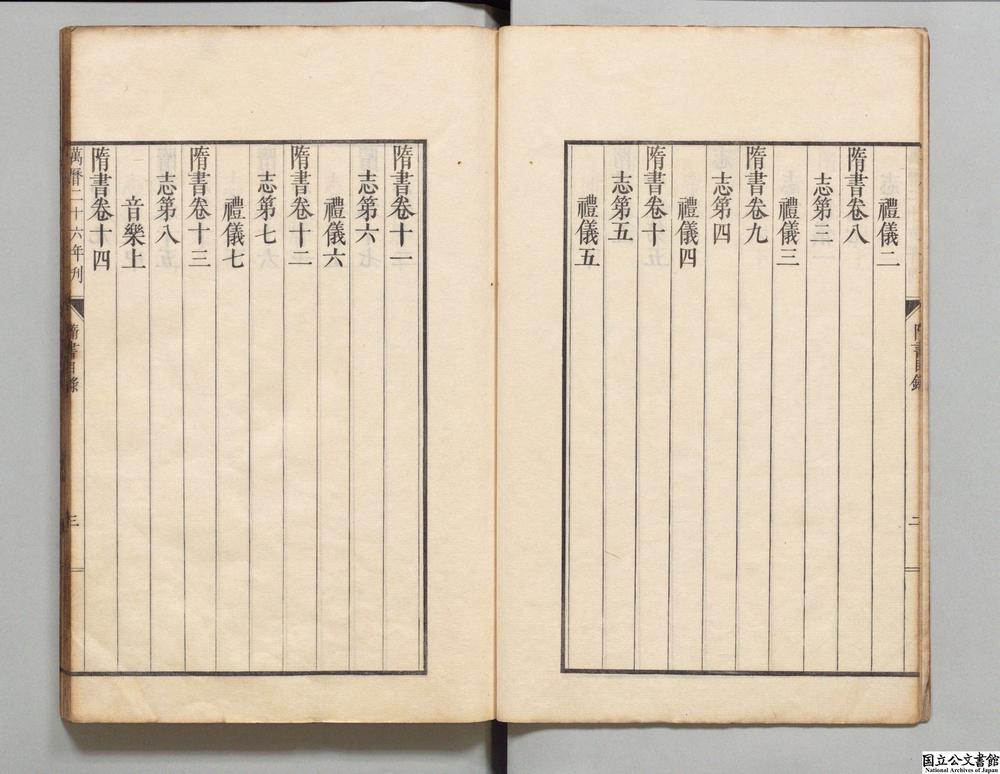 禮儀二
隋書卷八
志第三
禮儀三
隋書卷九
志第四
禮儀四
隋書卷十
志第五
禮儀五
隋書目錄
二
隋書卷十一
志第六
禮儀六
隋書卷十二
志第七
禮儀七
隋書卷十三
志第八
音樂上
隋書卷十四
萬曆二十六年刋
隋書目錄
三
国立公文書館
National Archives of Japan